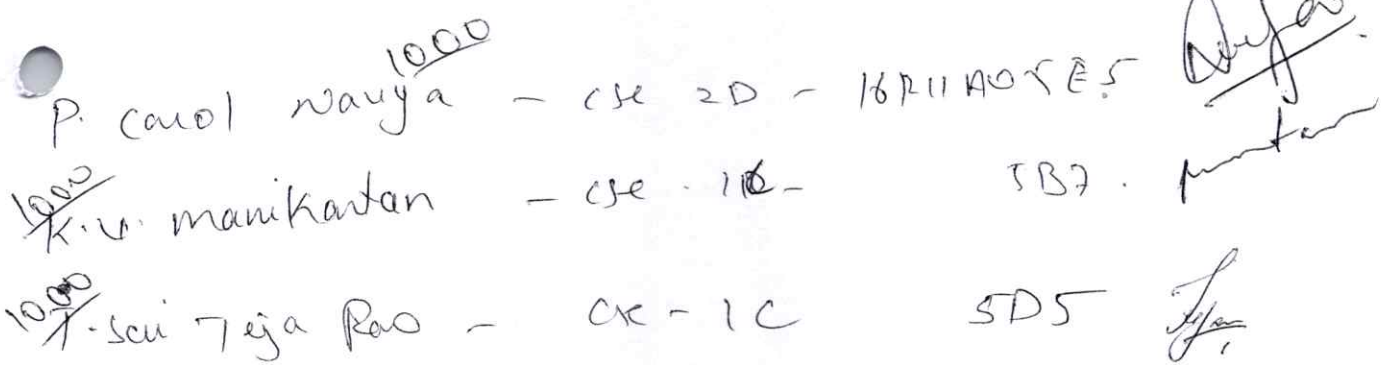 1000
P. Carol Navya - CSE 2D - 16R11A05E5
1000
K.V. manikantan - CSE - 1C - 5B7.
1000
T. Sai Teja Rao - CSE - 1C 5D5